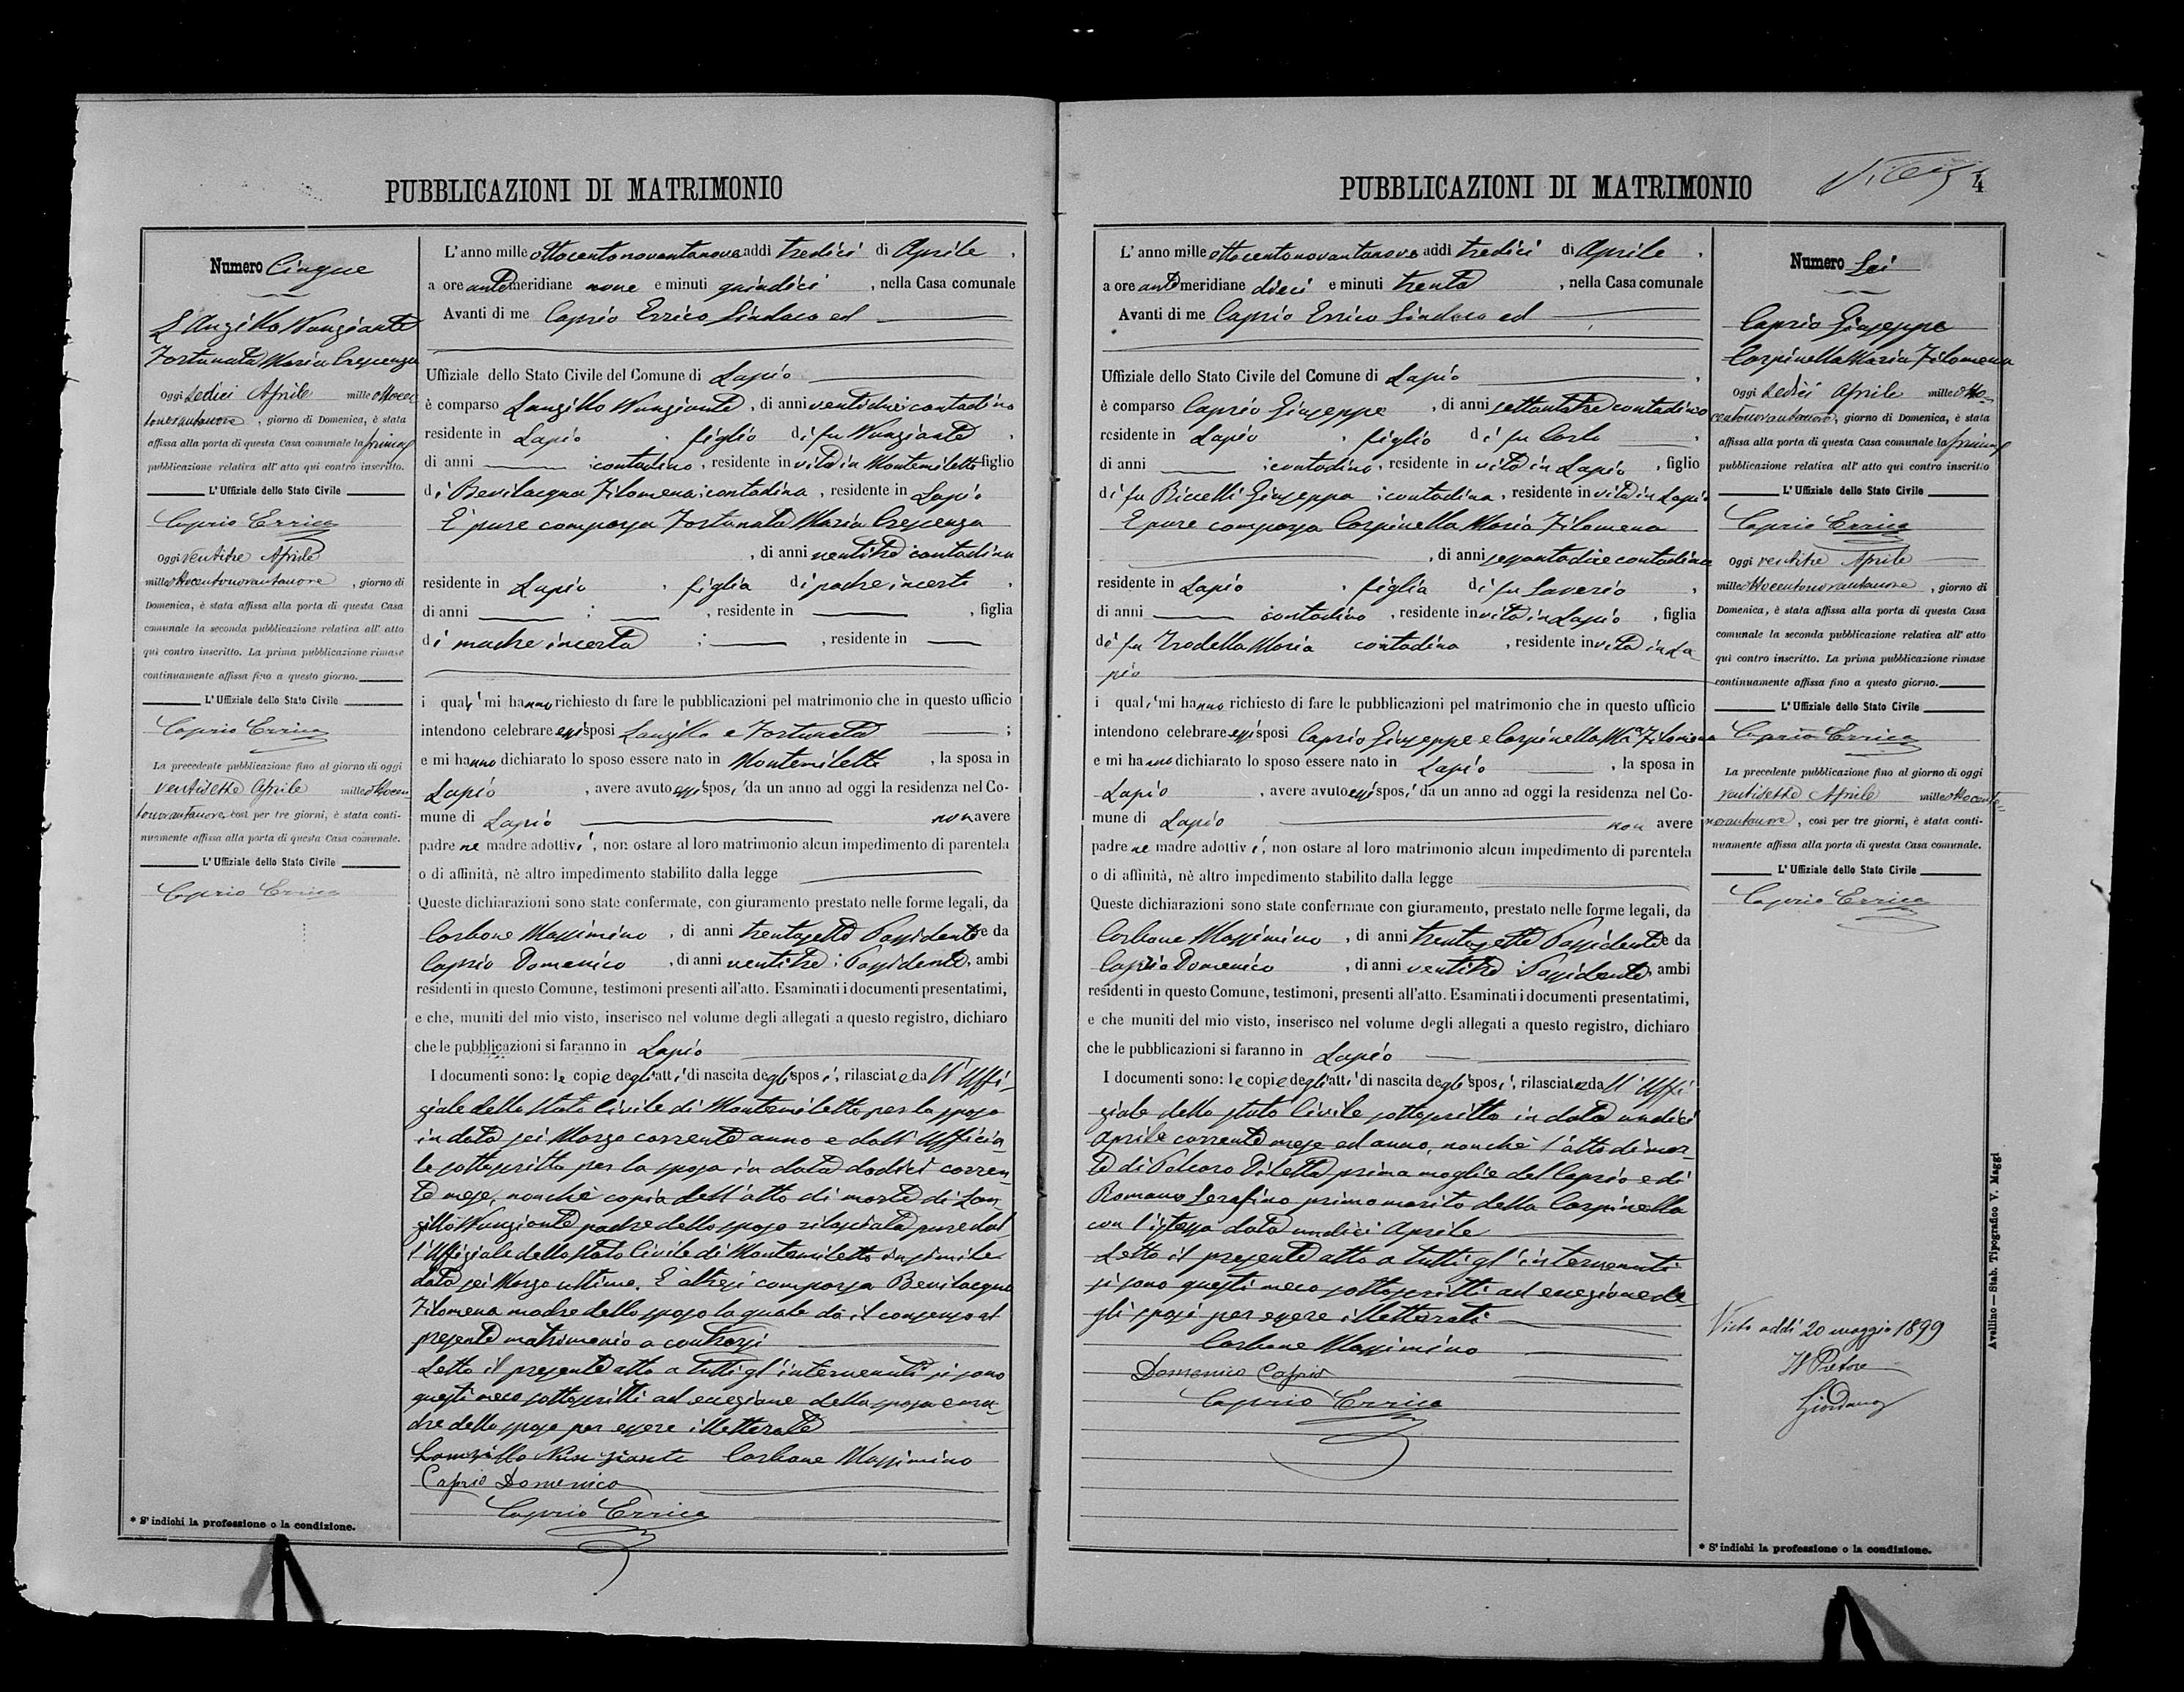 PUBBLICAZIONI DI MATRIMONIO
Numero Cinque
L'Angillo Nunziante
Fortunata Maria Crescenza
Oggi sedici Aprile mille ottocen
tonovantanove, giorno di Domenica, è stata
affissa alla porta di questa Casa comunale la prima
pubblicazione relativa all' atto qui contro inscritto.
L' Uffiziale dello Stato Civile
Caprio Errico
Oggi ventitre Aprile
mille ottocentonovantanove, giorno di
Domenica, è stata affissa alla porta di questa Casa
comunale la seconda pubblicazione relativa all' atto
qui contro inscritto. La prima pubblicazione rimase
continuamente affissa fino a questo giorno.
L' Uffiziale dello Stato Civile
Caprio Errico
La precedente pubblicazione fino al giorno di oggi
ventisette Aprile mille ottocen
tonovantanove, così per tre giorni, è stata conti-
nuamente affissa alla porta di questa Casa comunale.
L' Uffiziale dello Stato Civile
Caprio Errico
* S' indichi la professione o la condizione.
L' anno mille ottocentonovantanove addì tredici di Aprile,
a ore antemeridiane nove e minuti quindici, nella Casa comunale
Avanti di me Caprio Errico Sindaco ed
Uffiziale dello Stato Civile del Comune di Lapio
è comparso Langillo Nunziante, di anni ventidue contadino
residente in Lapio, figlio di fu Nunziante,
di anni ; contadino, residente in vita in Montemiletto figlio
di Bevilacqua Filomena ; contadina, residente in Lapio
E' pure comparsa Fortunata Maria Crescenza
, di anni ventitre contadina
residente in Lapio, figlia di padre incerto,
di anni ; , residente in , figlia
di madre incerta ; , residente in
i quali mi hanno richiesto di fare le pubblicazioni pel matrimonio che in questo ufficio
intendono celebrare essi sposi Langillo e Fortunata ;
e mi hanno dichiarato lo sposo essere nato in Montemiletto, la sposa in
Lapio, avere avuto essi sposi da un anno ad oggi la residenza nel Co-
mune di Lapio non avere
padre ne madre adottivi, non ostare al loro matrimonio alcun impedimento di parentela
o di affinità, nè altro impedimento stabilito dalla legge
Queste dichiarazioni sono state confermate, con giuramento prestato nelle forme legali, da
Carbone Massimino, di anni trentasette Possidente e da
Caprio Domenico, di anni ventitre ; Possidente, ambi
residenti in questo Comune, testimoni presenti all'atto. Esaminati i documenti presentatimi,
e che, muniti del mio visto, inserisco nel volume degli allegati a questo registro, dichiaro
che le pubblicazioni si faranno in Lapio
I documenti sono: le copie degli atti di nascita degli sposi, rilasciate da ll' Uffi-
ziale dello stato Civile di Montemiletto per lo sposo
in data sei Marzo corrente anno e dall' Ufficia-
le sottoscritto per la sposa in data dodici corren-
te mese, nonchè copia dell'atto di morte di Lan-
gillo Nunziante padre dello sposo rilasciata pure dal
l'Uffiziale dello stato Civile di Montemiletto in simile
data sei Marzo ultimo. E' altresì comparsa Bevilacqua
Filomena madre dello sposo la quale dà il consenso al
presente matrimonio a contrarsi
Letto il presente atto a tutti gl'intervenuti si sono
questi meco sottoscritti ad eccezione della sposa e ma-
dre dello sposo per essere illetterate
Langillo Nunziante Carbone Massimino
Caprio Domenico
Caprio Errico
PUBBLICAZIONI DI MATRIMONIO
4
L' anno mille ottocentonovantanove addì tredici di Aprile,
a ore antemeridiane dieci e minuti trenta, nella Casa comunale
Avanti di me Caprio Errico Sindaco ed
Uffiziale dello Stato Civile del Comune di Lapio
è comparso Caprio Giuseppe, di anni settantatre contadino
residente in Lapio, figlio di fu Carlo,
di anni ; contadino, residente in vita in Lapio, figlio
di fu Biccelli Giuseppa ; contadina, residente in vita in Lapio
E pure comparsa Carpinella Maria Filomena
, di anni sessantadue contadina
residente in Lapio, figlia di fu Saverio,
di anni contadino, residente in vita in Lapio, figlia
di fu Trodella Maria contadina, residente in vita in La
pio
i quali mi hanno richiesto di fare le pubblicazioni pel matrimonio che in questo ufficio
intendono celebrare essi sposi Caprio Giuseppe e Carpinella Ma Filomena
e mi hanno dichiarato lo sposo essere nato in Lapio, la sposa in
Lapio, avere avuto essi sposi da un anno ad oggi la residenza nel Co-
mune di Lapio non avere
padre ne madre adottivi, non ostare al loro matrimonio alcun impedimento di parentela
o di affinità, nè altro impedimento stabilito dalla legge
Queste dichiarazioni sono state confermate con giuramento, prestato nelle forme legali, da
Carbone Massimino, di anni trentasette Possidente e da
Caprio Domenico, di anni ventitre ; Possidente, ambi
residenti in questo Comune, testimoni, presenti all'atto. Esaminati i documenti presentatimi,
e che muniti del mio visto, inserisco nel volume degli allegati a questo registro, dichiaro
che le pubblicazioni si faranno in Lapio
I documenti sono: le copie degli atti di nascita degli sposi, rilasciate da ll' Uffi
ziale dello stato Civile sottoscritto in data undici
Aprile corrente mese ed anno, nonchè l'atto di mor-
te di Diletta prima moglie del Caprio e di
Romano Serafino primo marito della Carpinella
con l'istessa data undici Aprile
Letto il presente atto a tutti gl'intervenuti
si sono questi meco sottoscritti ad eccezione de-
gli sposi per essere illetterati
Carbone Massimino
Domenico Caprio
Caprio Errico
Numero Sei
Caprio Giuseppe
Carpinella Maria Filomena
Oggi sedici Aprile mille otto-
centonovantanove, giorno di Domenica, è stata
affissa alla porta di questa Casa comunale la prima
pubblicazione relativa all' atto qui contro inscritto
L' Uffiziale dello Stato Civile
Caprio Errico
Oggi ventitre Aprile
mille ottocentonovantanove, giorno di
Domenica, è stata affissa alla porta di questa Casa
comunale la seconda pubblicazione relativa all' atto
qui contro inscritto. La prima pubblicazione rimase
continuamente affissa fino a questo giorno.
L' Uffiziale dello Stato Civile
Caprio Errico
La precedente pubblicazione fino al giorno di oggi
ventisette Aprile mille ottocento-
novantanove, così per tre giorni, è stata conti-
nuamente affissa alla porta di questa Casa comunale.
L' Uffiziale dello Stato Civile
Caprio Errico
Visto addì 20 maggio 1899
Il Pretore
Giordano
* S' indichi la professione o la condizione.
Avellino — Stab. Tipografico V. Maggi